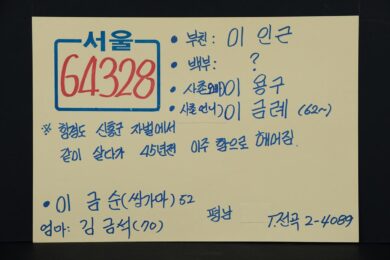 서울
64328
• 부친: 이 인근
• 백부: ?
• 사촌오빠) 이 용구
사촌언니) 이 금례 (62~)
※ 함경도 신흥군 자벌에서
같이 살다가 45년전 이주 함으로 헤어짐.
• 이 금순(쌍가마) 52
엄마: 김 금석(70)
평남
T.전곡 2-4089